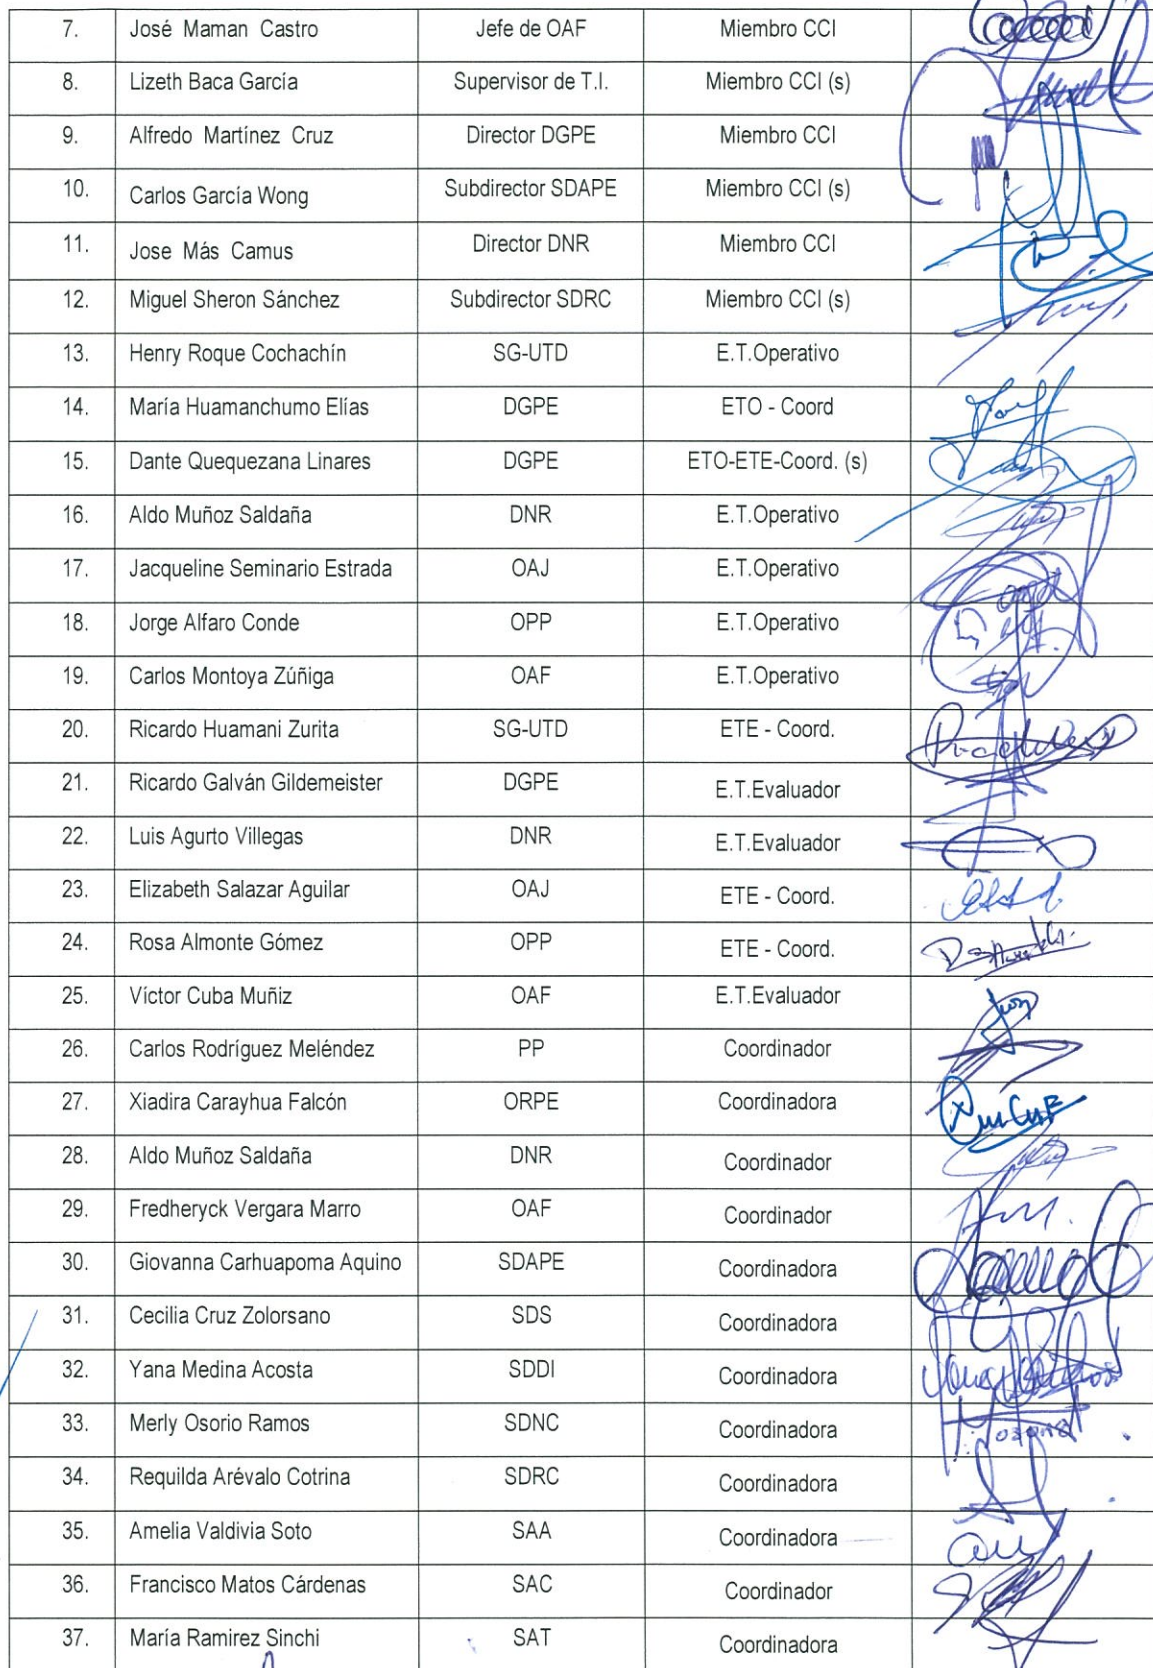 7. José Maman Castro Jefe de OAF Miembro CCI
8. Lizeth Baca García Supervisor de T.I. Miembro CCI (s)
9. Alfredo Martínez Cruz Director DGPE Miembro CCI
10. Carlos García Wong Subdirector SDAPE Miembro CCI (s)
11. Jose Más Camus Director DNR Miembro CCI
12. Miguel Sheron Sánchez Subdirector SDRC Miembro CCI (s)
13. Henry Roque Cochachín SG-UTD E.T.Operativo
14. María Huamanchumo Elías DGPE ETO - Coord
15. Dante Quequezana Linares DGPE ETO-ETE-Coord. (s)
16. Aldo Muñoz Saldaña DNR E.T.Operativo
17. Jacqueline Seminario Estrada OAJ E.T.Operativo
18. Jorge Alfaro Conde OPP E.T.Operativo
19. Carlos Montoya Zúñiga OAF E.T.Operativo
20. Ricardo Huamani Zurita SG-UTD ETE - Coord.
21. Ricardo Galván Gildemeister DGPE E.T.Evaluador
22. Luis Agurto Villegas DNR E.T.Evaluador
23. Elizabeth Salazar Aguilar OAJ ETE - Coord.
24. Rosa Almonte Gómez OPP ETE - Coord.
25. Víctor Cuba Muñiz OAF E.T.Evaluador
26. Carlos Rodríguez Meléndez PP Coordinador
27. Xiadira Carayhua Falcón ORPE Coordinadora
28. Aldo Muñoz Saldaña DNR Coordinador
29. Fredheryck Vergara Marro OAF Coordinador
30. Giovanna Carhuapoma Aquino SDAPE Coordinadora
31. Cecilia Cruz Zolorsano SDS Coordinadora
32. Yana Medina Acosta SDDI Coordinadora
33. Merly Osorio Ramos SDNC Coordinadora
34. Requilda Arévalo Cotrina SDRC Coordinadora
35. Amelia Valdivia Soto SAA Coordinadora
36. Francisco Matos Cárdenas SAC Coordinador
37. María Ramirez Sinchi SAT Coordinadora